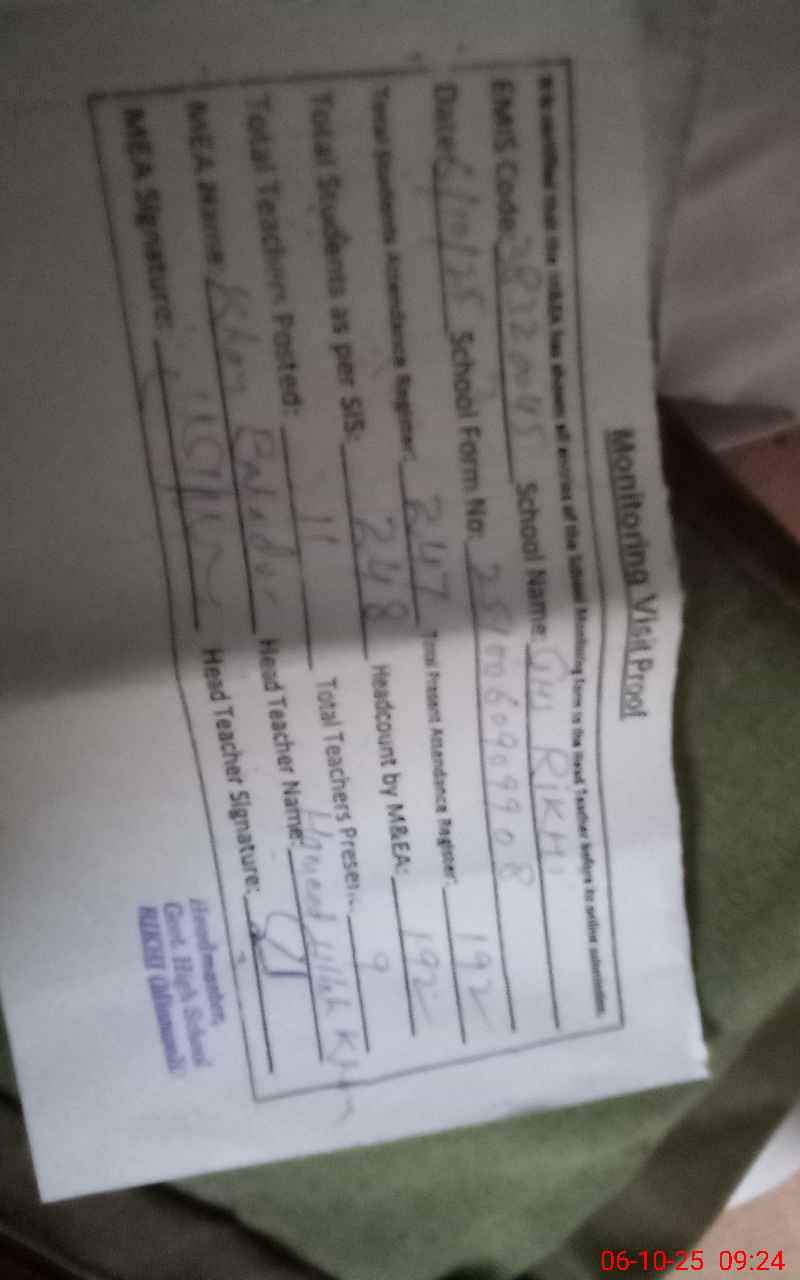 Monitoring Visit Proof
It is certified that the M&EA has shown all entries of the School Monitoring Form to the Head Teacher before its online submission.
EMIS Code: School Name: GHS RIKHI
Date: 6/10/25 School Form No: 2510060909908
Total Students Attendance Register: 247 Total Present Attendance Register: 192
Total Students as per SIS: 248 Headcount by M&EA: 192
Total Teachers Posted: 11 Total Teachers Present: 9
MEA Name: Khan Bahadur Head Teacher Name: Hameed Ullah Khan
MEA Signature: Head Teacher Signature:
Headmaster,
Govt. High School
RIKHI (Mianwali)
06-10-25 09:24